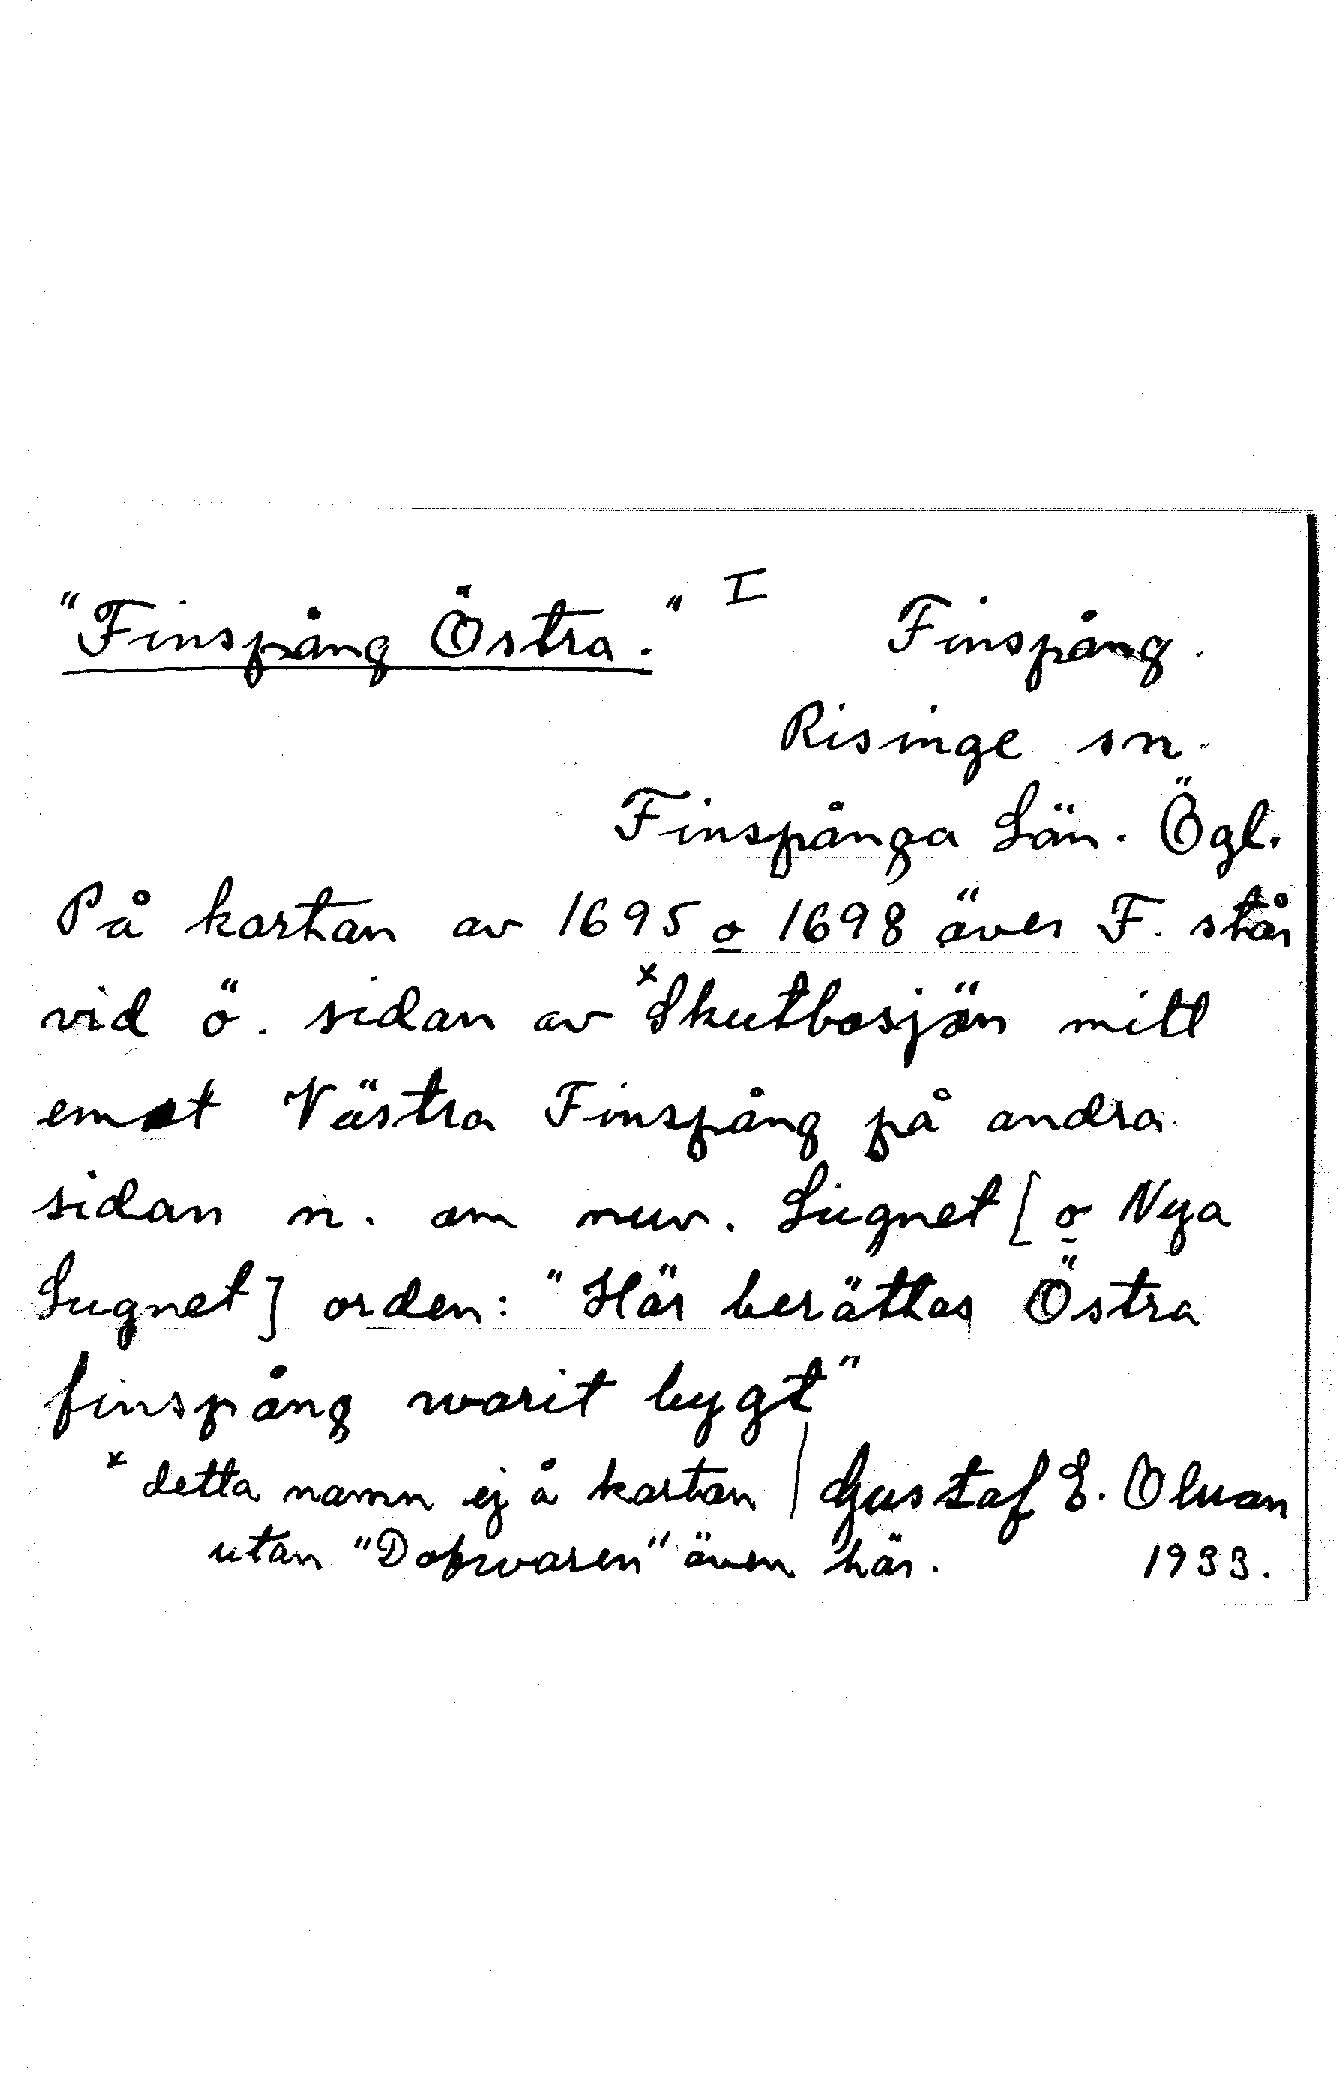 "Finspång Östra." I Finspång.
Risinge sn.
Finspånga Län. Ögl.
På kartan av 1695 o 1698 över F. står
vid ö. sidan av ˣSkutbosjön mitt
emot Västra Finspång på andra
sidan n. om nuv. Lugnet [o Nya
Lugnet] orden: "Här berättas Östra
finspång warit bygt"
ˣ detta namn ej å kartan / Gustaf E. Olsson
utan "Dofwaren" även här. 1933.